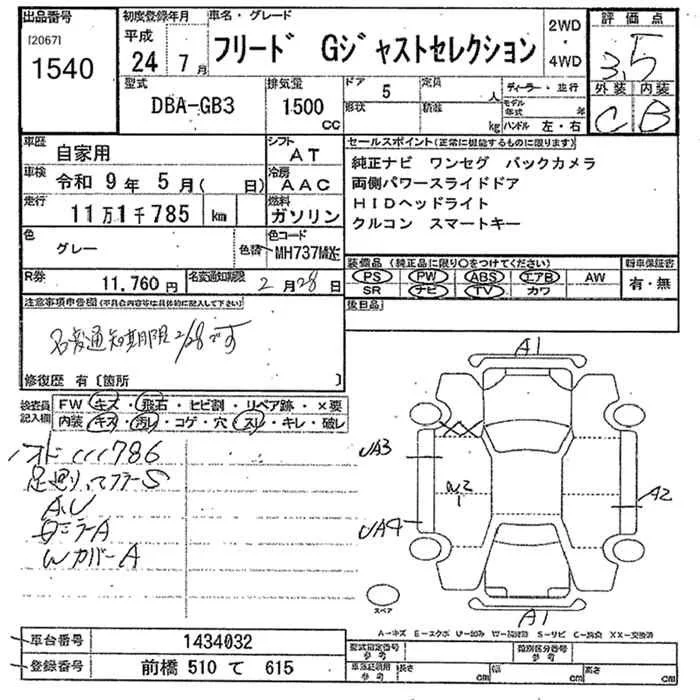 出品番号 初度登録年月 車名・グレード 2WD・4WD 評価点
[2067] 1540 平成 24年 7月 フリード Gジャストセレクション 3.5
型式 排気量 ドア 定員 ディーラー・並行 外装 内装
DBA-GB3 1500 CC 5 人 C B
形状 積載 kg モデル年式 年 ハンドル 左・右
車歴 自家用 シフト AT セールスポイント(正常に機能するものに限ります)
車検 令和 9年 5月( 日) 冷房 AAC 純正ナビ ワンセグ バックカメラ
両側パワースライドドア
走行 11万1千785 km 燃料 ガソリン HIDヘッドライト
クルコン スマートキー
色 グレー 色替 色コード MH737M
装備品(純正品に限り○をつけてください) 新車保証書
PS PW ABS エアB AW 有・無
SR ナビ TV カワ
R券 11,760円 名変通知期限 2月28日
後日品
注意事項申告欄(不具合内容等は具体的に記入して下さい)
名変通知期限2/28です
修復歴 有〔箇所 〕
検査員記入欄 FW キズ・飛石・ヒビ割・リペア跡・×要
内装 キズ・汚レ・コゲ・穴・スレ・キレ・破レ
786
S
A,U
A
Wカバー A
A1
UA3
UA4
A2
A1
スペア
A-キズ E-エクボ U-凹み W-補修跡 S-サビ C-腐食 XX-交換済
車台番号 1434032 型式指定番号 参考 類別区分番号 参考
登録番号 前橋 510 て 615 車落記載用 参考 長さ cm 幅 cm 高さ cm